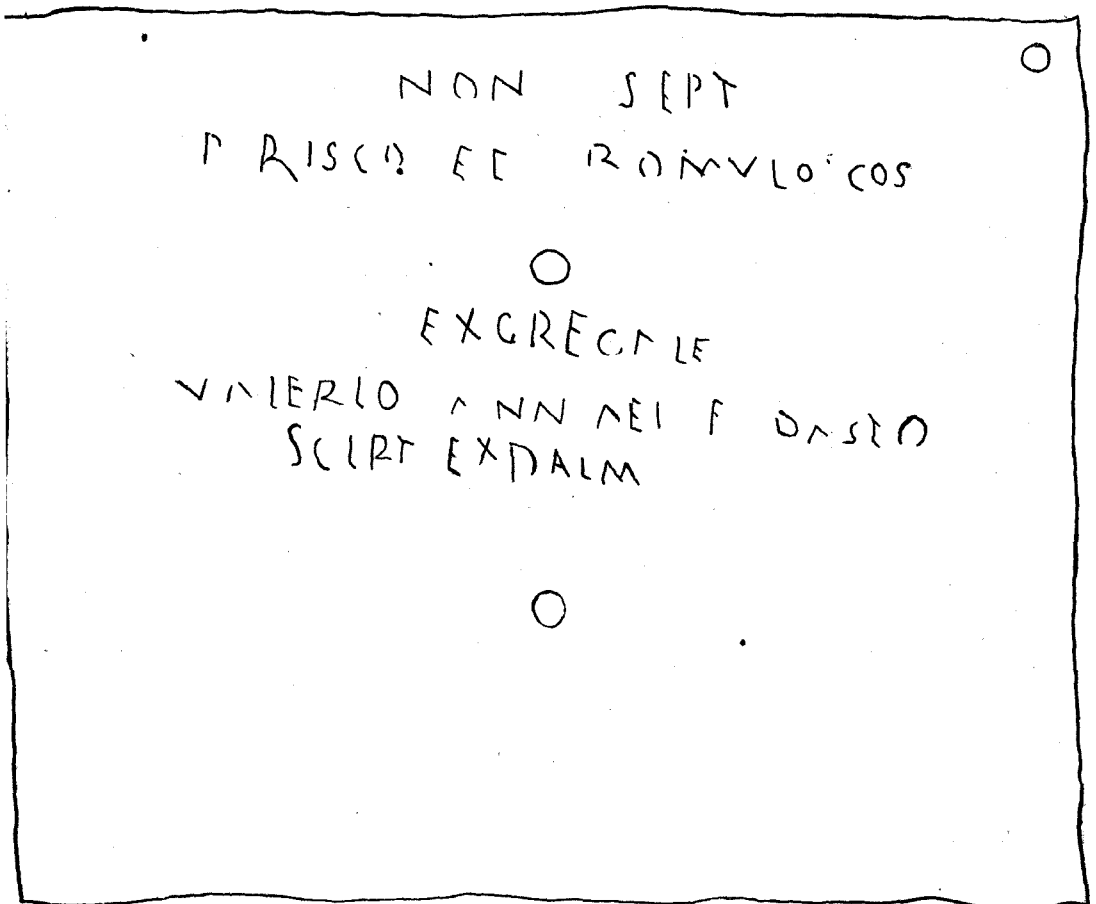 NON SEPT
PRISCO ET ROMVLO COS
EXGREGALE
VALERIO ANNAEI F DASIO
SCIRT EXDALM